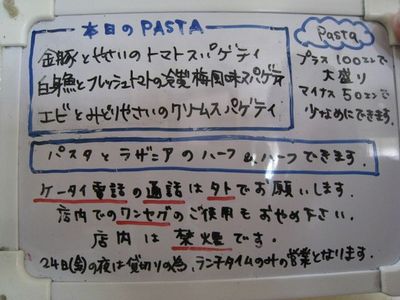 本日のPASTA
金豚とやさいのトマトスパゲティ
白身魚とフレッシュトマトの冷製梅風味スパゲティ
エビとみどりやさいのクリームスパゲティ
Pasta
プラス100エンで
大盛り
マイナス50エンで
少なめにできます.
パスタとラザニアのハーフ&ハーフできます.
ケータイ電話の通話はタトでお願いします.
店内でのワンセグのご使用もおやめ下さい.
店内は禁煙です.
24日(金)の夜は貸切りの為、ランチタイムのみの営業となります.